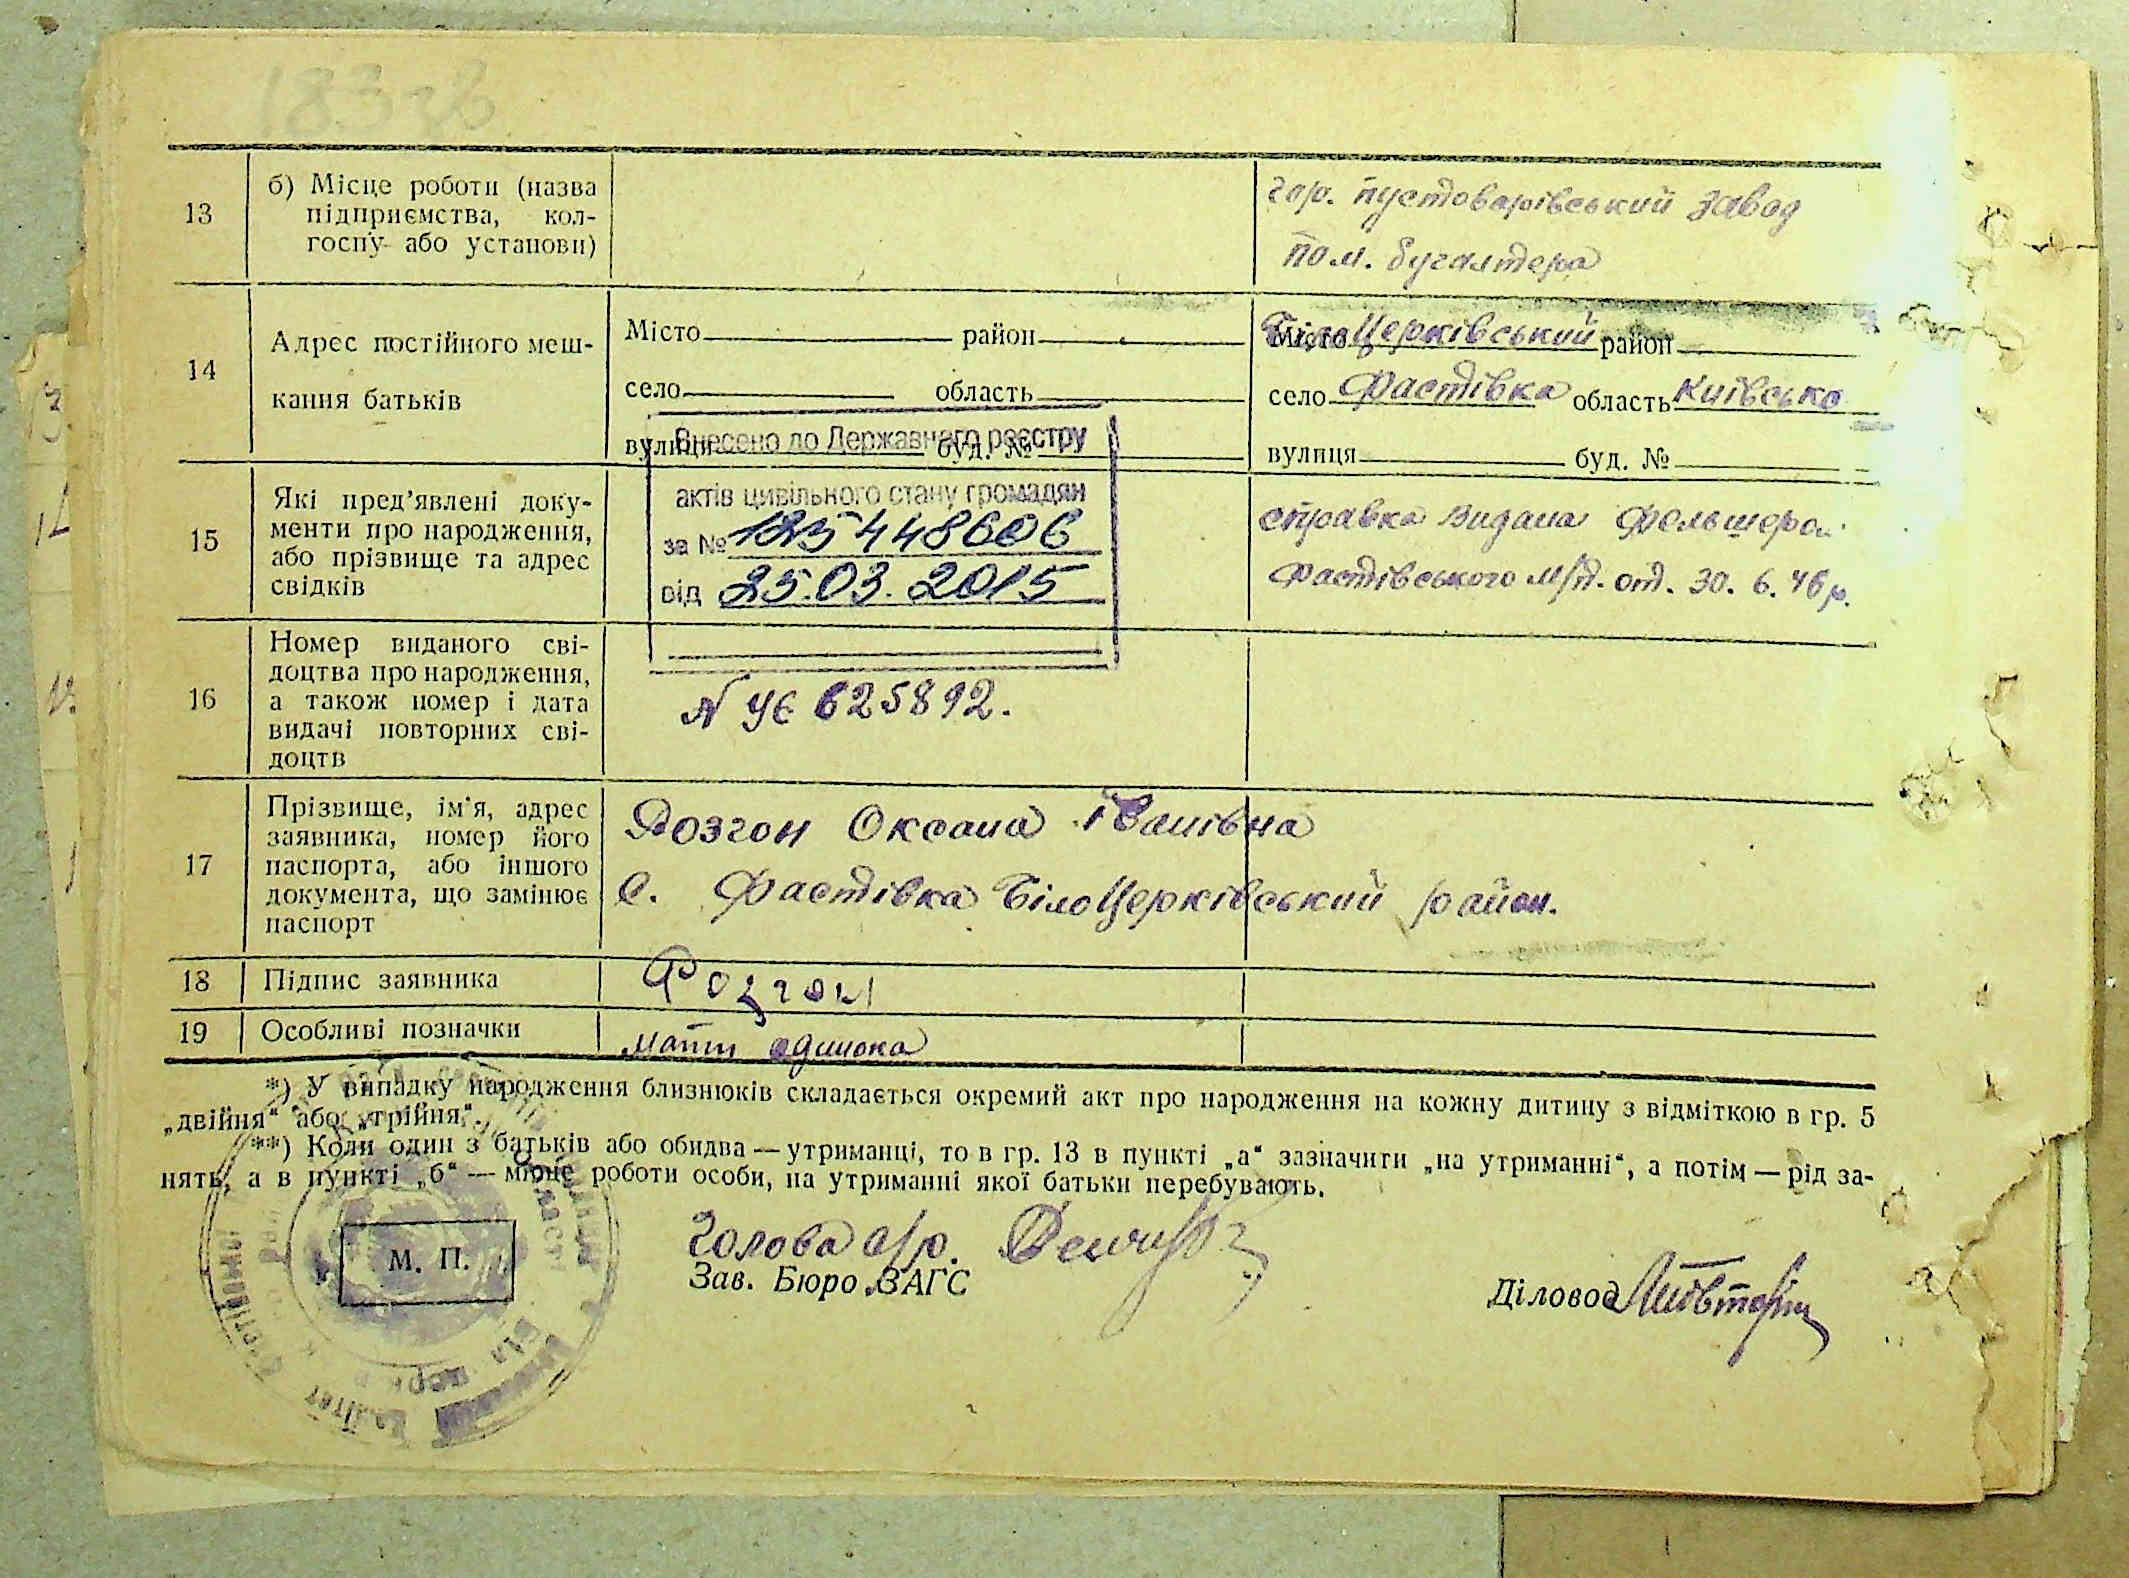 183 зв
13
б) Місце роботи (назва
підприємства, кол-
госпу або установи)
гор. пустоварівський завод
пом. бугалтера
14
Адрес постійного меш-
кання батьків
Місто район
село область
вулиця буд. №
Місто БілоЦерківський район
село Фастівка область Київсько
вулиця буд. №
Внесено до Державного реєстру
актів цивільного стану громадян
за №
від 25.03.2015
15
Які пред’явлені доку-
менти про народження,
або прізвище та адрес
свідків
справка видана Фельшером
Фастівського м/п. от. 30. 6. 46 р.
16
Номер виданого сві-
доцтва про народження,
а також номер і дата
видачі повторних сві-
доцтв
N УЄ 625892.
17
Прізвище, ім’я, адрес
заявника, номер його
паспорта, або іншого
документа, що замінює
паспорт
Розгон Оксана Іванівна
с. Фастівка БілоЦерківський район.
18
Підпис заявника
Розгон
19
Особливі позначки
мати одинока
*) У випадку народження близнюків складається окремий акт про народження на кожну дитину з відміткою в гр. 5
„двійня“ або „трійня“.
**) Коли один з батьків або обидва — утриманці, то в гр. 13 в пункті „а“ зазначити „на утриманні“, а потім — рід за-
нять, а в пункті „б“ — місце роботи особи, на утриманні якої батьки перебувають.
М. П.
Голова с/р.
Зав. Бюро ЗАГС
Діловод